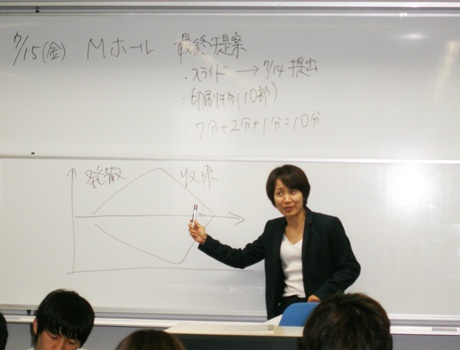 7/15(金) Mホール 最終提案
・スライド → 7/14 提出
・印刷物(10部)
・7分+2分+1分=10分
発散 収束